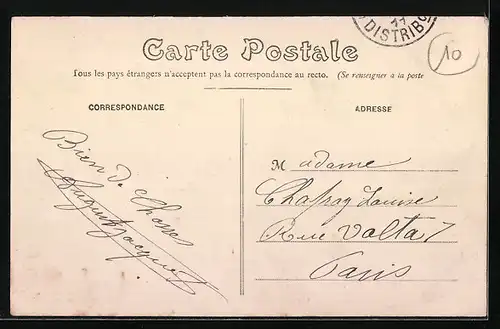 11
DISTRIB
10
Carte Postale
Tous les pays étrangers n'acceptent pas la correspondance au recto. (Se renseigner à la poste
CORRESPONDANCE
ADRESSE
Bien d. Choses
Madame
Louise
Rue Volta 7
Paris